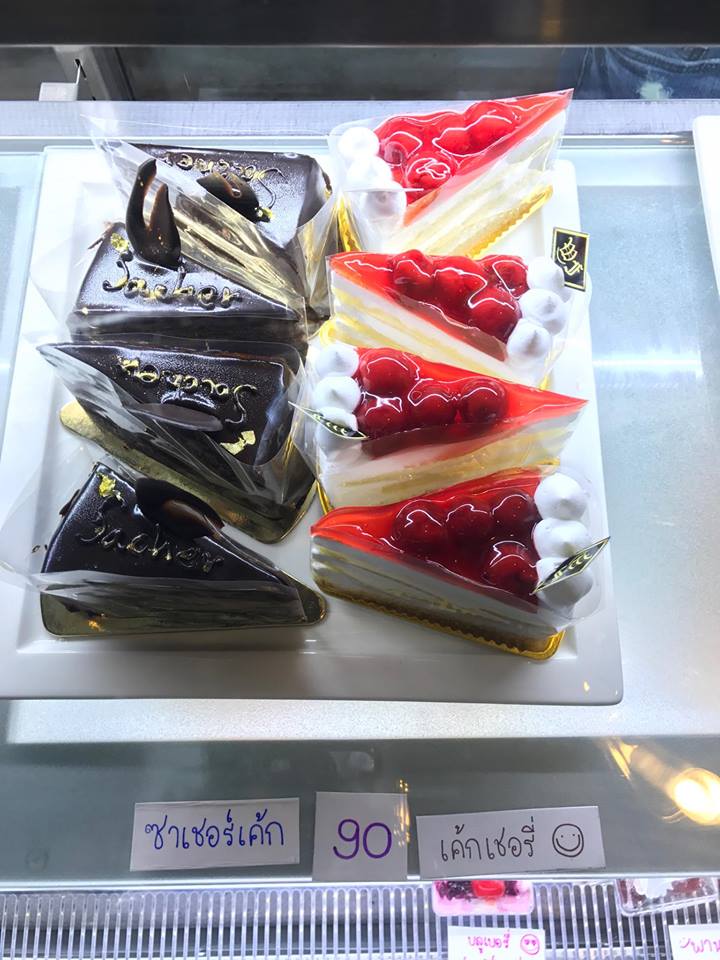 Sacher
Sacher
Sacher
Sacher
ซาเชอร์เค้ก
90
เค้กเชอรี่
บลูเบอรี่